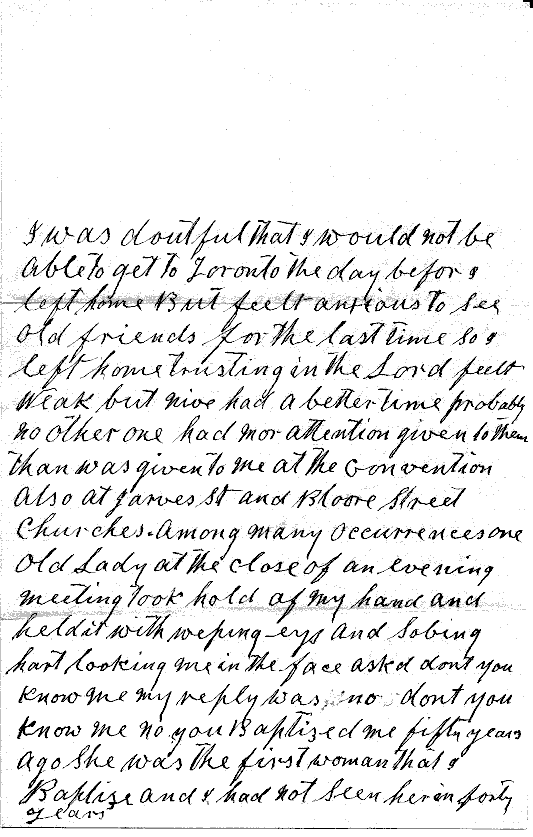 I was doutful that I would not be
able to get to Toronto the day befor I
left home But feelt anxious to see
old friends for the last time so I
left home trusting in the Lord feelt
weak but nive had a better time probably
no other one had mor attention given to them
than was given to me at the Convention
also at Jarves St and Bloore Street
Churches. Among many occurrences one
old Lady at the close of an evening
meeting took hold of my hand and
held it with weping eys and Sobing
hart looking me in the face askd dont you
know me my reply was no dont you
know me no you Baptised me fifty years
ago She was the first woman that I
Baptise and I had not seen her in forty
years